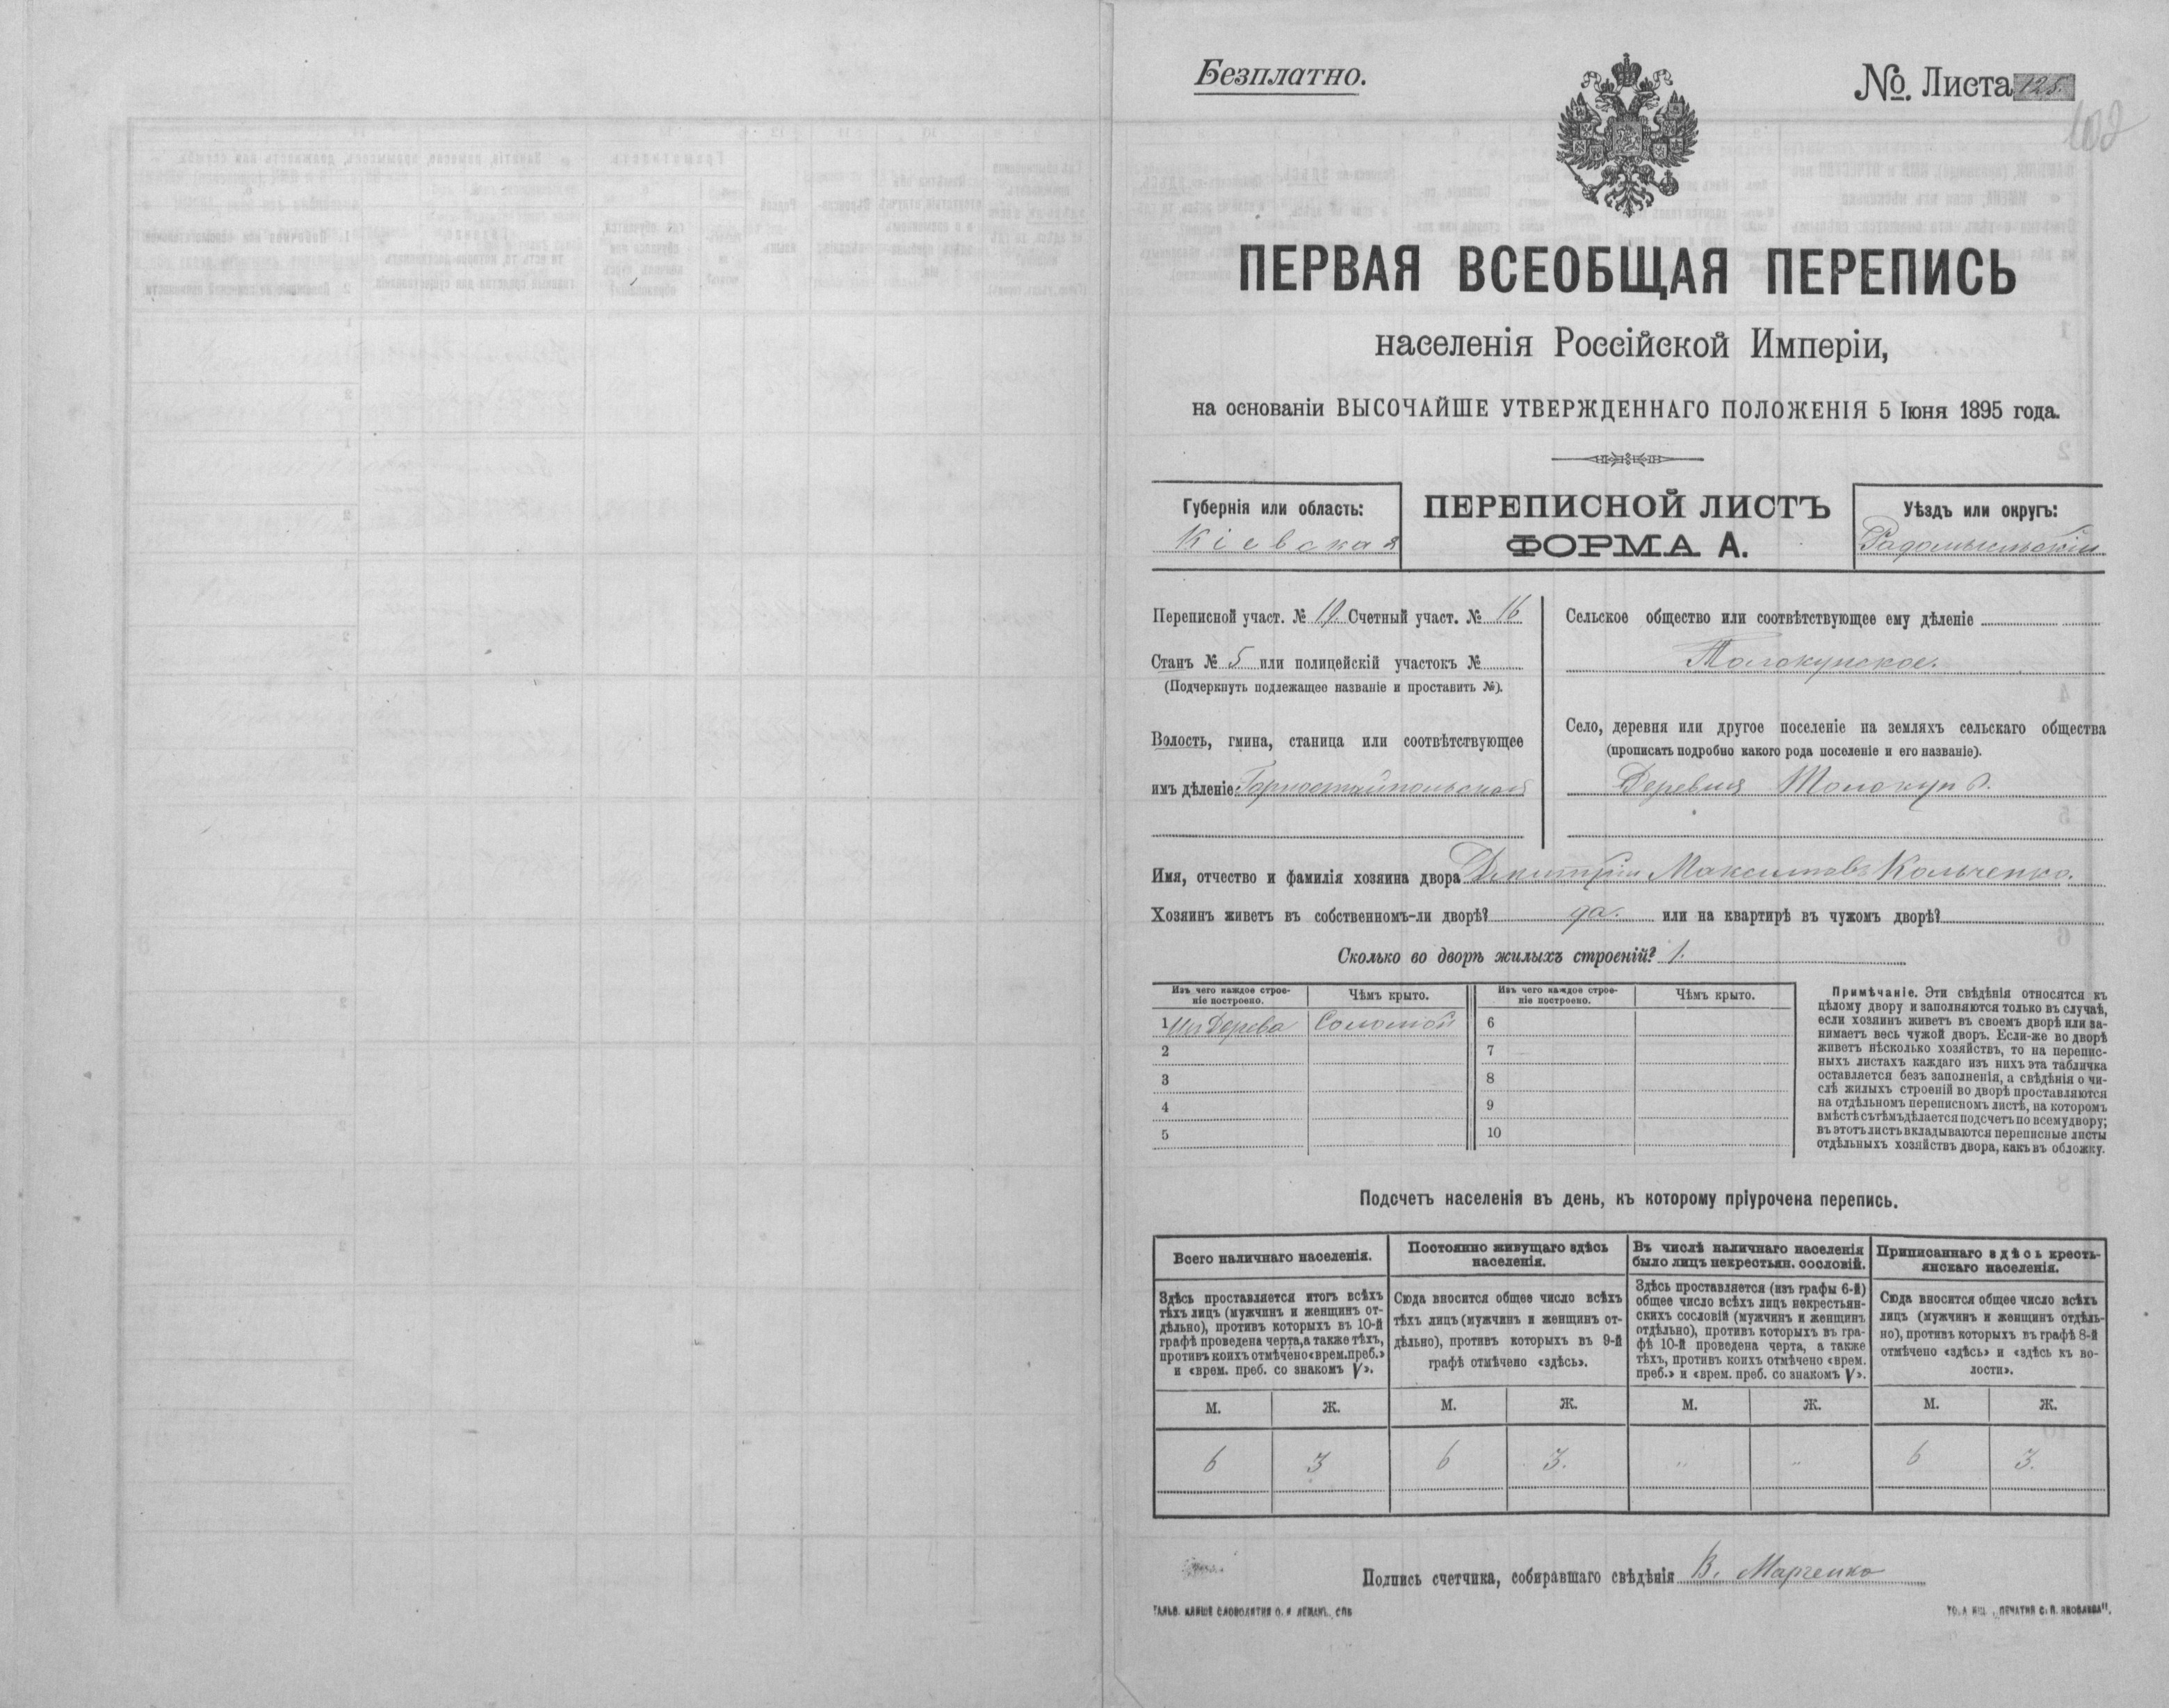 Безплатно.
№. Листа 125.
ПЕРВАЯ ВСЕОБЩАЯ ПЕРЕПИСЬ
населенія Россійской Имперіи,
на основаніи ВЫСОЧАЙШЕ УТВЕРЖДЕННАГО ПОЛОЖЕНІЯ 5 Іюня 1895 года.
Губернія или область:
Кіевская
ПЕРЕПИСНОЙ ЛИСТЪ
ФОРМА А.
Уѣздъ или округъ:
Радомысльскій
Переписной участ. № 19. Счетный участ. № 16
Станъ № 5 или полицейскій участокъ №
(Подчеркнуть подлежащее названіе и проставить №).
Волость, гмина, станица или соотвѣтствующее
имъ дѣленіе Горностайпольская
Сельское общество или соотвѣтствующее ему дѣленіе
Толокунское.
Село, деревня или другое поселеніе на земляхъ сельскаго общества
(прописать подробно какого рода поселеніе и его названіе).
Деревня Толокунь.
Имя, отчество и фамилія хозяина двора Дмитрій Максимовъ Кольченко.
Хозяинъ живетъ въ собственномъ-ли дворѣ? да. или на квартирѣ въ чужомъ дворѣ?
Сколько во дворѣ жилыхъ строеній? 1.
Изъ чего каждое строе-
ніе построено.
Чѣмъ крыто.
Изъ чего каждое строе-
ніе построено.
Чѣмъ крыто.
1 Из Дерева Соломой 6
2 7
3 8
4 9
5 10
Примѣчаніе. Эти свѣдѣнія относятся къ
цѣлому двору и заполняются только въ случаѣ,
если хозяинъ живетъ въ своемъ дворѣ или за-
нимаетъ весь чужой дворъ. Если-же во дворѣ
живетъ нѣсколько хозяйствъ, то на перепис-
ныхъ листахъ каждаго изъ нихъ эта табличка
оставляется безъ заполненія, а свѣдѣнія о чи-
слѣ жилыхъ строеній во дворѣ проставляются
на отдѣльномъ переписномъ листѣ, на которомъ
вмѣстѣ съ тѣмъ дѣлается подсчетъ по всему двору;
въ этотъ листъ вкладываются переписные листы
отдѣльныхъ хозяйствъ двора, какъ въ обложку.
Подсчетъ населенія въ день, къ которому пріурочена перепись.
Всего наличнаго населенія.
Здѣсь проставляется итогъ всѣхъ
тѣхъ лицъ (мужчинъ и женщинъ от-
дѣльно), противъ которыхъ въ 10-й
графѣ проведена черта, а также тѣхъ,
противъ коихъ отмѣчено «врем. преб.»
и «врем. преб. со знакомъ V».
Постоянно живущаго здѣсь
населенія.
Сюда вносится общее число всѣхъ
тѣхъ лицъ (мужчинъ и женщинъ от-
дѣльно), противъ которыхъ въ 9-й
графѣ отмѣчено «здѣсь».
Въ числѣ наличнаго населенія
было лицъ некрестьян. сословій.
Здѣсь проставляется (изъ графы 6-й)
общее число всѣхъ лицъ некрестьян-
скихъ сословій (мужчинъ и женщинъ
отдѣльно), противъ которыхъ въ гра-
фѣ 10-й проведена черта, а также
тѣхъ, противъ коихъ отмѣчено «врем.
преб.» и «врем. преб. со знакомъ V».
Приписаннаго здѣсь кресть-
янскаго населенія.
Сюда вносится общее число всѣхъ
лицъ (мужчинъ и женщинъ отдѣль-
но), противъ которыхъ въ графѣ 8-й
отмѣчено «здѣсь» и «здѣсь къ во-
лости».
М. Ж. М. Ж. М. Ж. М. Ж.
6 3 6 3. " " 6 3.
Подпись счетчика, собиравшаго свѣдѣнія В. Марченко